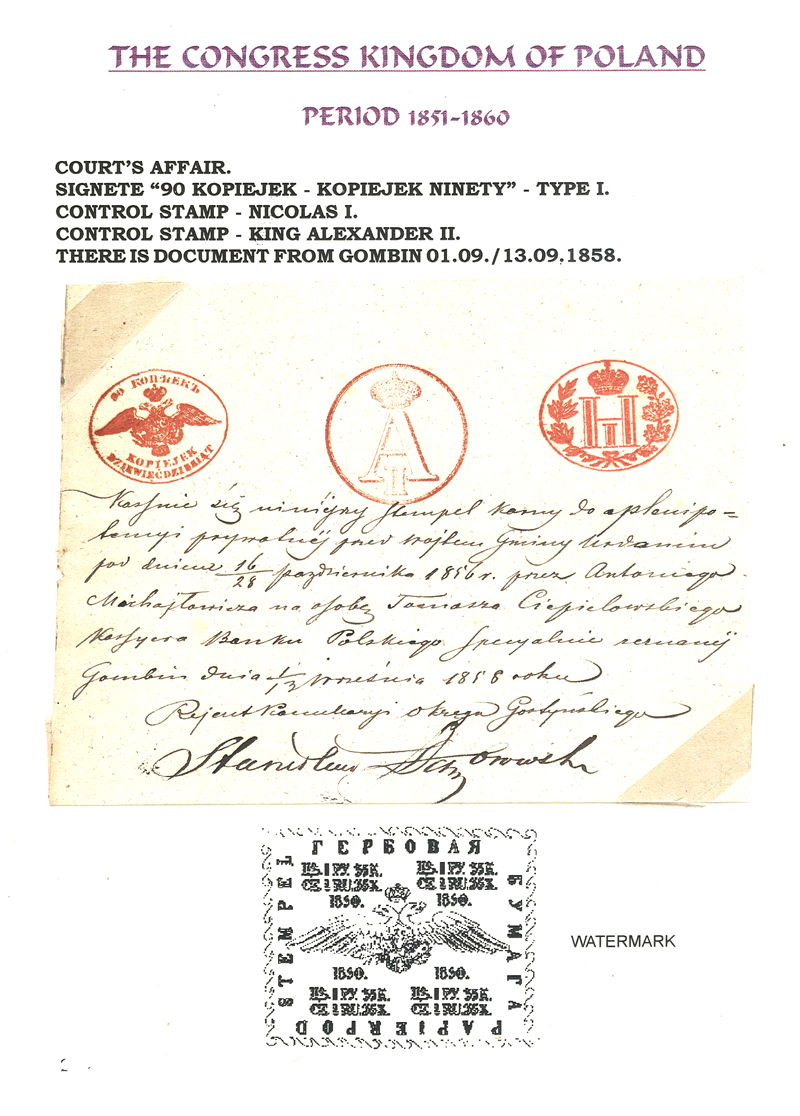 THE CONGRESS KINGDOM OF POLAND
PERIOD 1851-1860
COURT'S AFFAIR.
SIGNETE “90 KOPIEJEK - KOPIEJEK NINETY” - TYPE I.
CONTROL STAMP - NICOLAS I.
CONTROL STAMP - KING ALEXANDER II.
THERE IS DOCUMENT FROM GOMBIN 01.09./13.09.1858.
90 КОПѢЕКЪ
KOPIEJEK
DZIEWIĘĆDZIESIĄT
A II
H I
Kassuie się niniejszy stempel karny do
prywatnej przed Wójtem Gminy
pod dniem 16/28 października 1856 r. przez Antoniego
Michajłowicza na osobę Tomasza Ciepielowskiego
Kassyera Banku Polskiego specyalnie zeznanej
Gombin dnia 1/13 września 1858 roku
Rejent Kancellaryi Okręgu Gostyńskiego
Stanisław
ГЕРБОВАЯ
БУМАГА
STEMPEL
PAPIER POD
1850. 1850.
1850. 1850.
WATERMARK
2